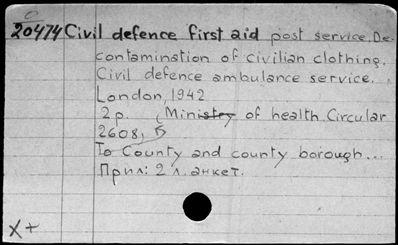 C
20474 Civil defence first aid post service. De-
contamination of civilian clothing.
Civil defence ambulance service.
London, 1942
2 p. (Ministry of health. Circular
2608,)
To County and county borough...
Прил: 2 л. анкет.
X+